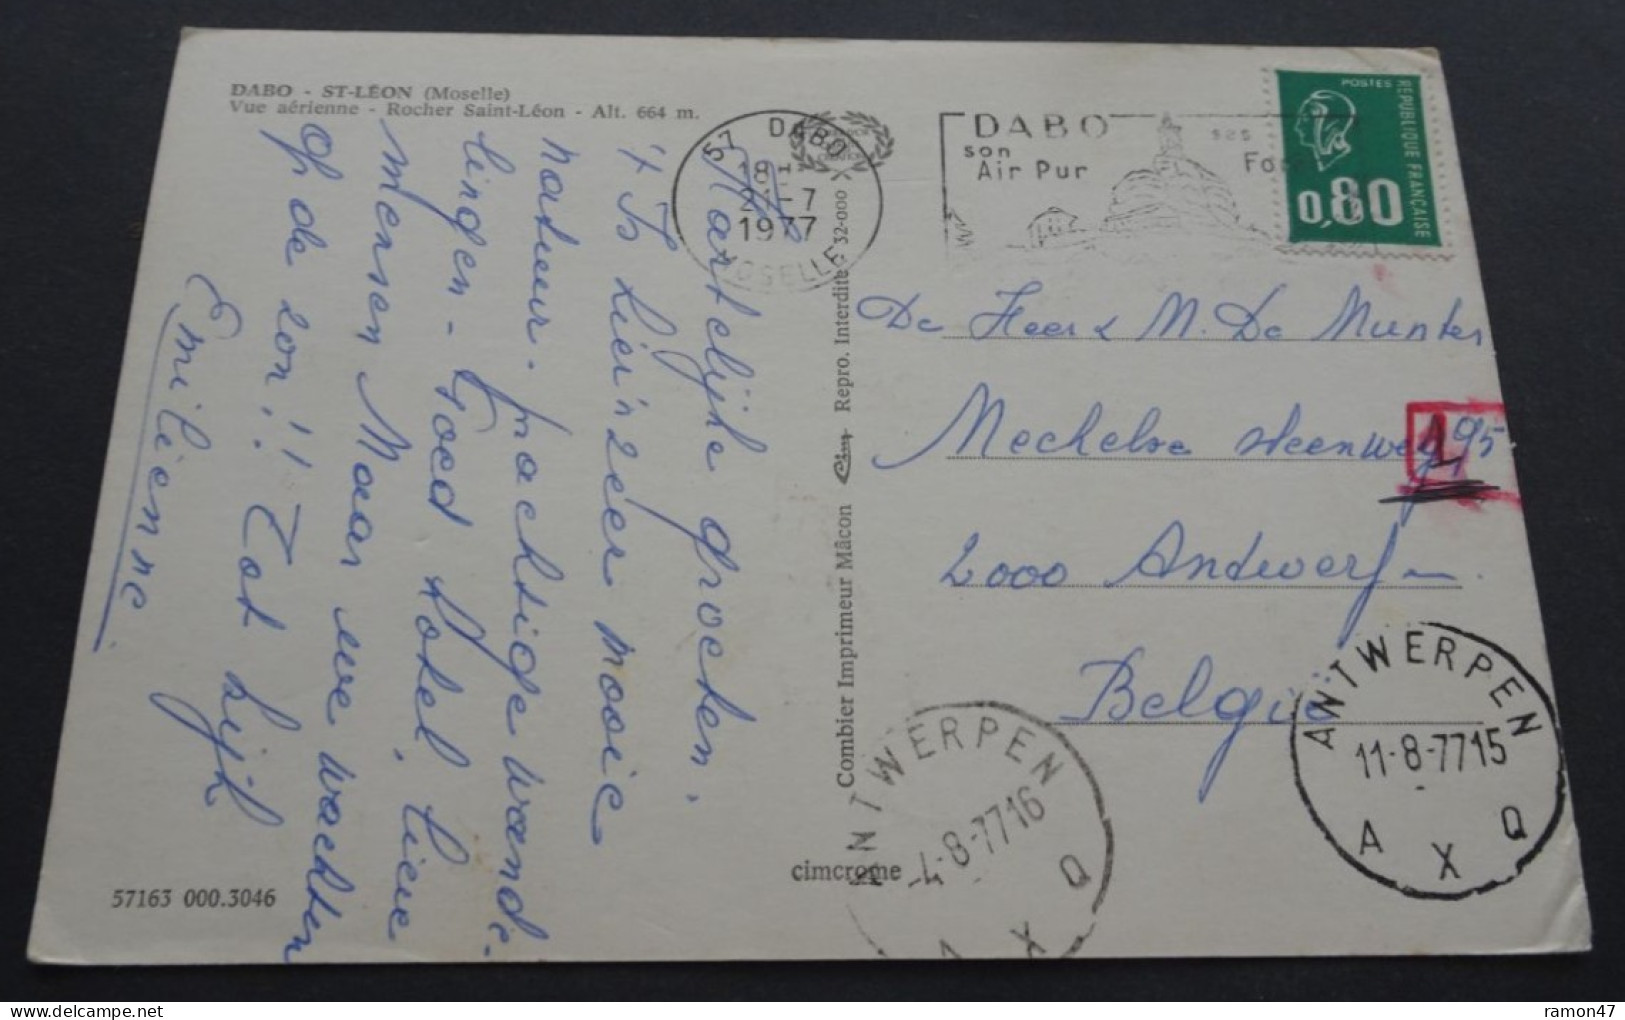 DABO - ST-LÉON (Moselle)
Vue aérienne - Rocher Saint-Léon - Alt. 664 m.
57 DABO
18 H
7
1977
MOSELLE
DABO
son
Air Pur
ses
POSTES
REPUBLIQUE FRANCAISE
0,80
Hartelijke groeten.
't Is hier zeer mooie
natuur. prachtige wande-
lingen - Goed Hotel, lieve
mensen Maar we wachten
op de zon!! Tot kijk
Emilienne
De Heer & M. De Munter
Mechelse steenweg 195
1
2000 Antwerpen
België
Combier Imprimeur Mâcon Cim Repro. Interdite 32-000
cimcrome
57163 000.3046
ANTWERPEN
-4-8-7716
A X Q
ANTWERPEN
11-8-7715
A X Q
ramon47